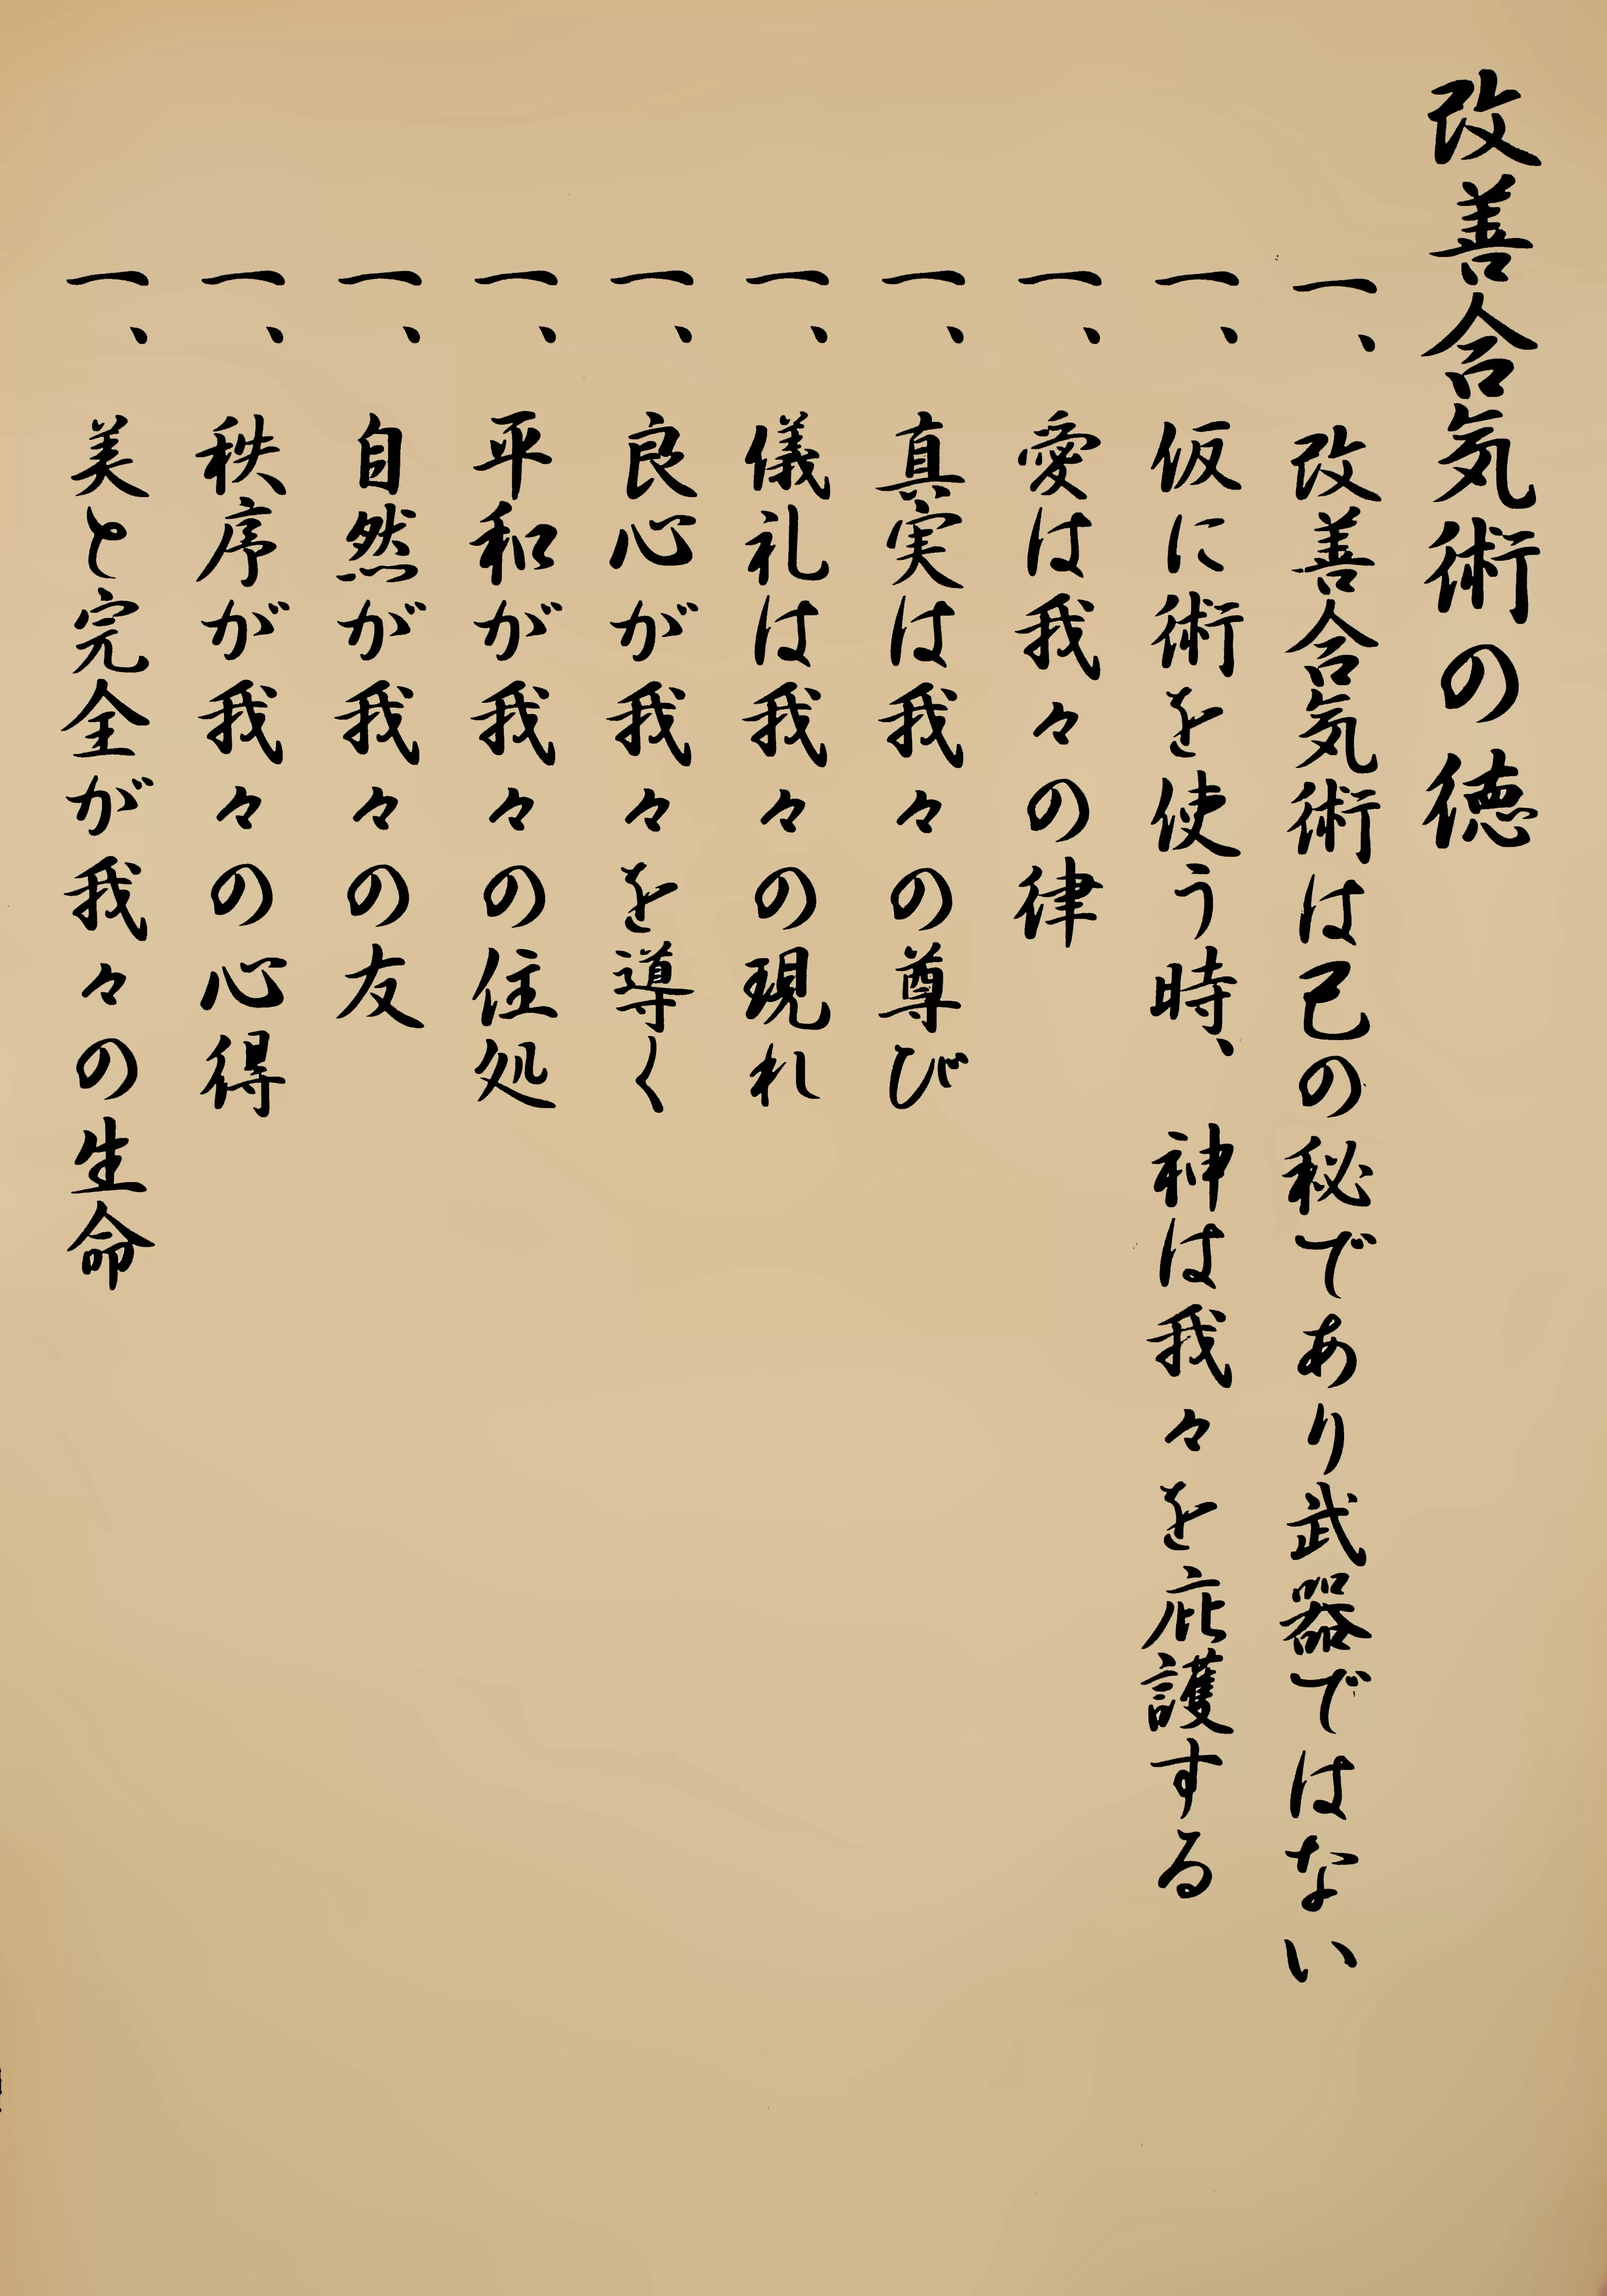 改善合気術の徳
一、改善合気術は己の秘であり武器ではない
一、仮に術を使う時、神は我々を庇護する
一、愛は我々の律
一、真実は我々の尊び
一、儀礼は我々の現れ
一、良心が我々を導く
一、平和が我々の住処
一、自然が我々の友
一、秩序が我々の心得
一、美と完全が我々の生命